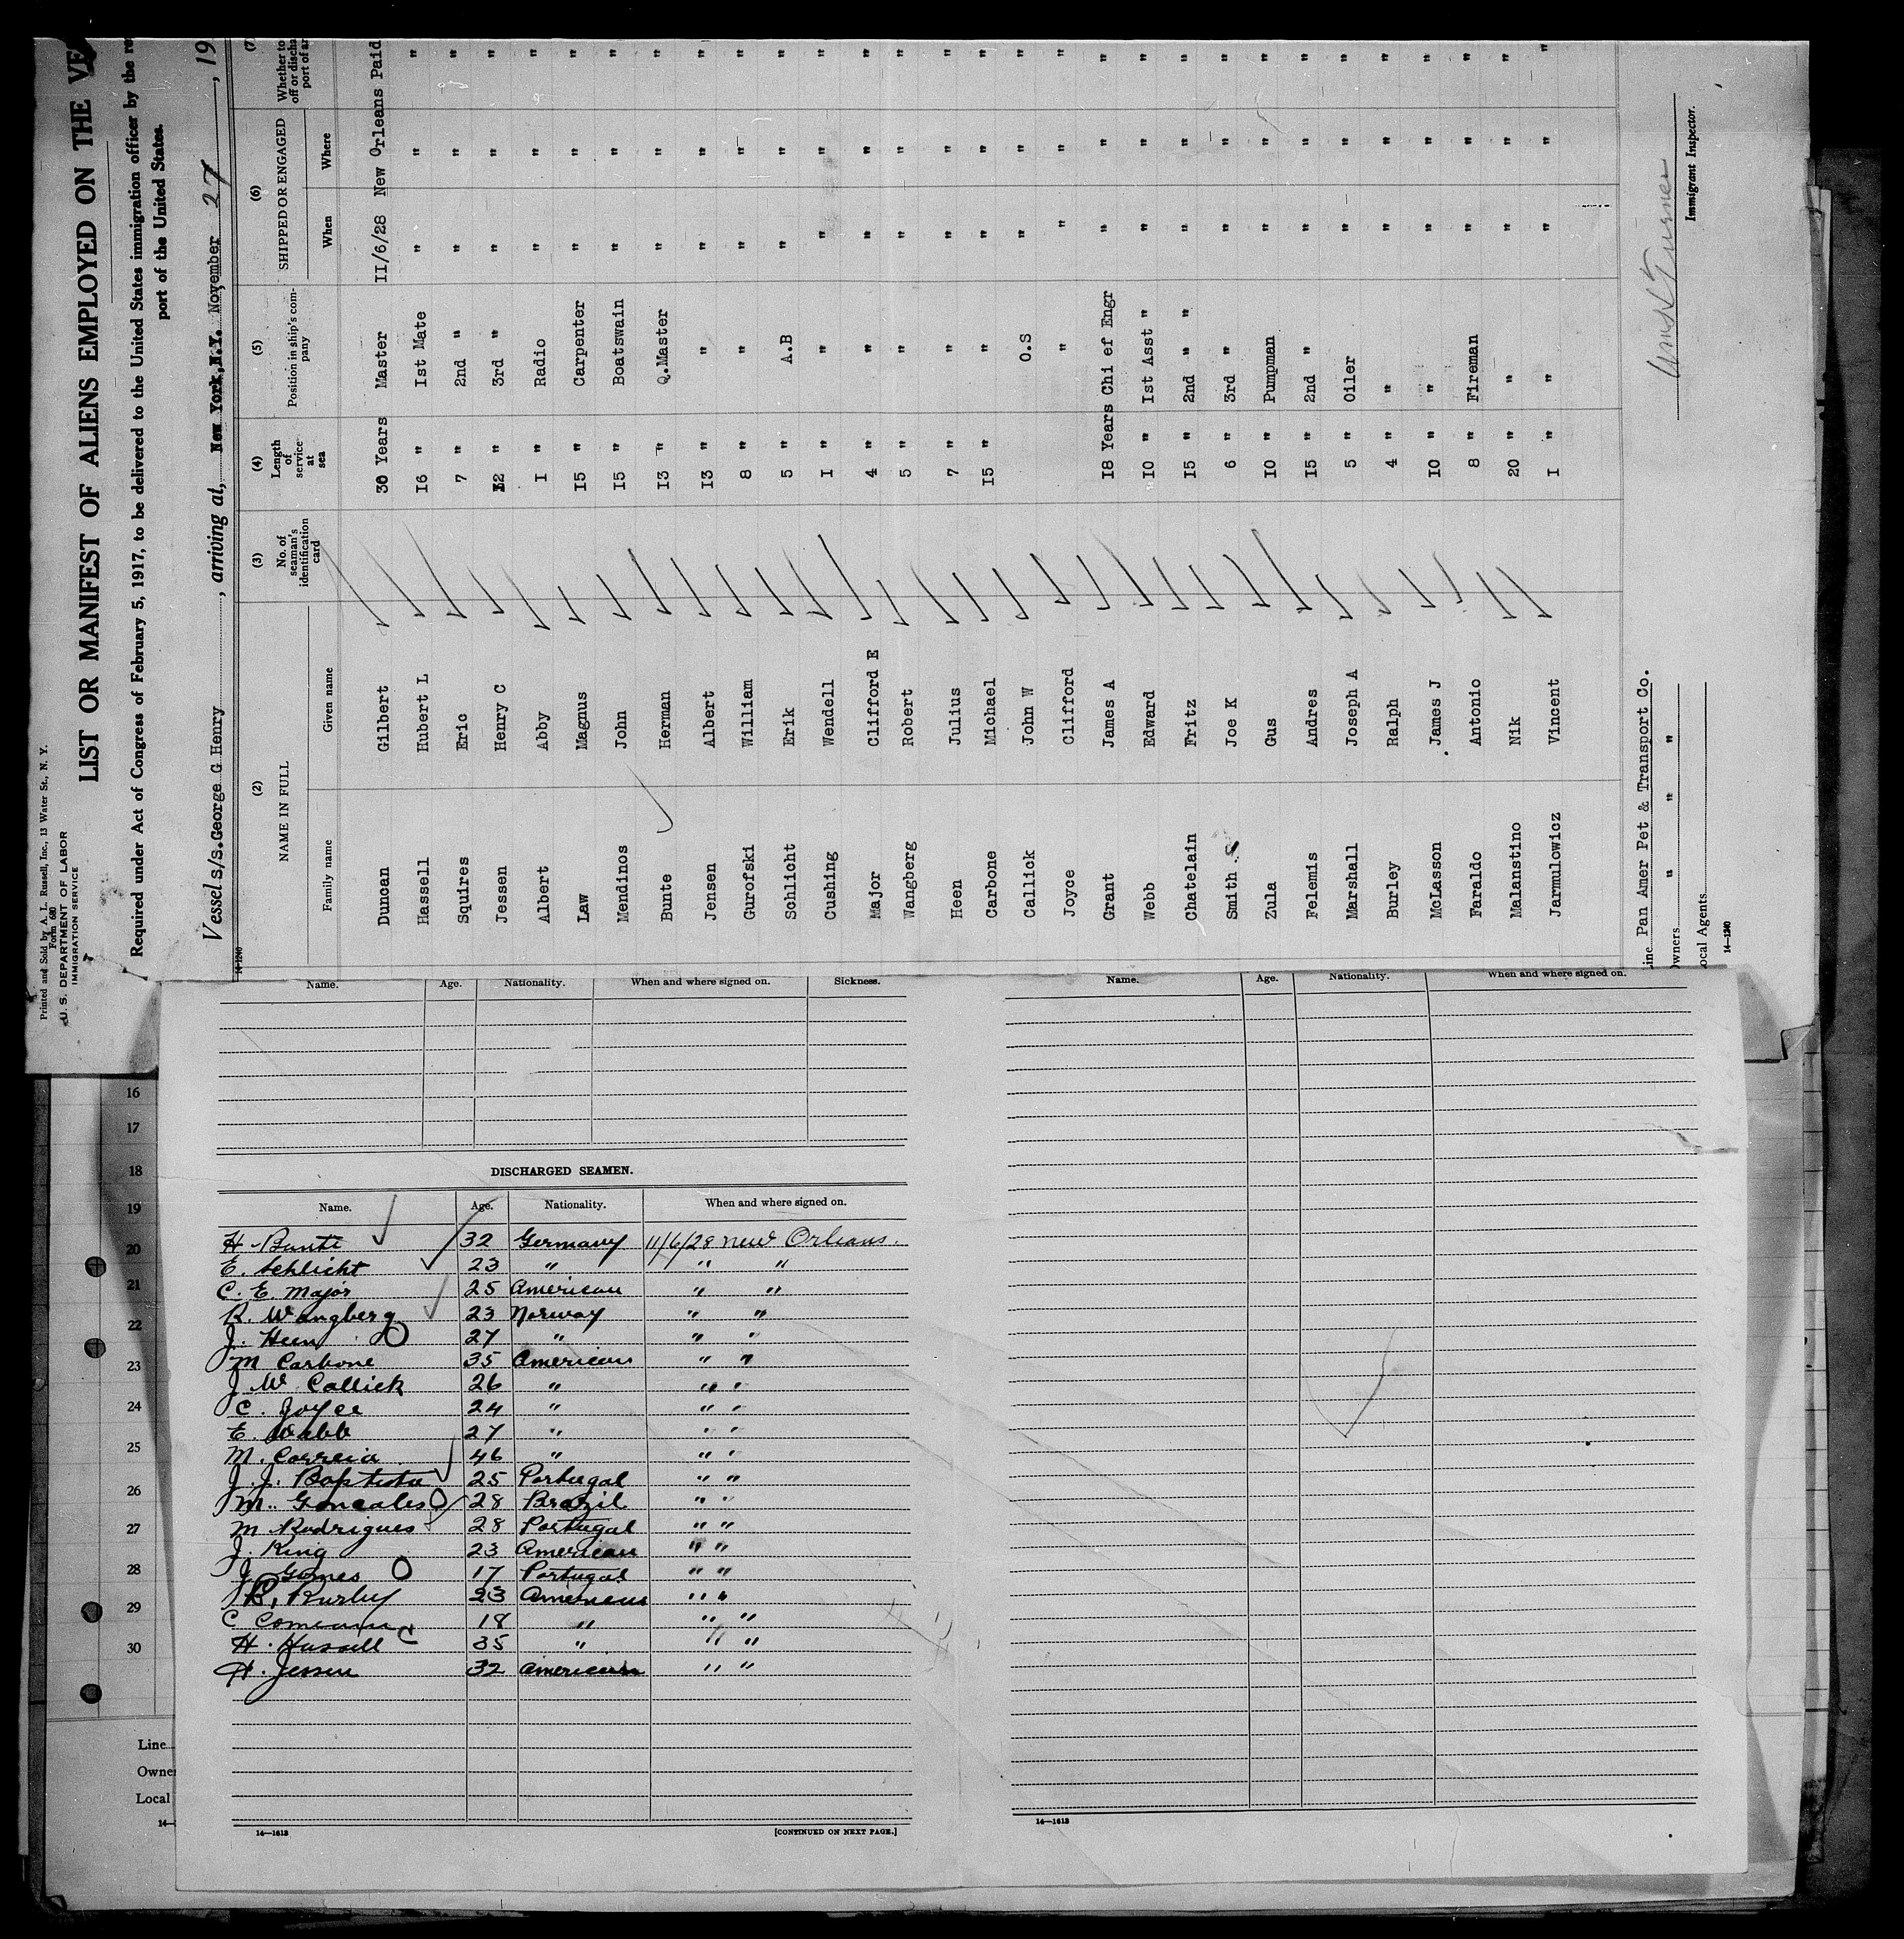 Printed and Sold by A. L. Russell, Inc., 13 Water St., N. Y.
Form 680
U. S. DEPARTMENT OF LABOR
IMMIGRATION SERVICE
LIST OR MANIFEST OF ALIENS EMPLOYED ON THE VE
Required under Act of Congress of February 5, 1917, to be delivered to the United States immigration officer by the re
port of the United States.
Vessel S/S. George G Henry, arriving at, New York, N.Y. November 27, 19
14-1240
(2) (3) (4) (5) (6) (7)
NAME IN FULL No. of seaman's identification card Length of service at sea Position in ship's company SHIPPED OR ENGAGED Whether to off or discha port of ar
Family name Given name When Where
Duncan Gilbert 30 Years Master II/6/28 New Orleans Paid
Hassell Hubert L I6 " Ist Mate " " "
Squires Eric 7 " 2nd " " " "
Jessen Henry C I2 " 3rd " " " "
Albert Abby I " Radio " " "
Law Magnus I5 " Carpenter " " "
Mendinos John I5 " Boatswain " " "
Bunte Herman I3 " Q.Master " " "
Jensen Albert I3 " " " " "
Gurofski William 8 " " " " "
Schlicht Erik 5 " A.B " " "
Cushing Wendell I " " " " "
Major Clifford E 4 " " " " "
Wangberg Robert 5 " " " " "
Heen Julius 7 " " " " "
Carbone Michael I5 " " " " "
Callick John W O.S " " "
Joyce Clifford " " " "
Grant James A I8 Years Chi ef Engr " " "
Webb Edward I0 " Ist Asst " " " "
Chatelain Fritz I5 " 2nd " " " " "
Smith S. Joe K 6 " 3rd " " " "
Zula Gus I0 " Pumpman " " "
Felemis Andres I5 " 2nd " " " "
Marshall Joseph A 5 " Oiler " " "
Burley Ralph 4 " " " " "
McLasson James J I0 " " " " "
Faraldo Antonio 8 " Fireman " " "
Malanstino Nik 20 " " " " "
Jarmulowicz Vincent I " " " " "
Line Pan Amer Pet & Transport Co.
Owners " " "
ocal Agents
14-1240
Immigrant Inspector.
Name. Age. Nationality. When and where signed on. Sickness.
DISCHARGED SEAMEN.
Name. Age. Nationality. When and where signed on.
H. Bunte 32 Germany 11/6/28 New Orleans.
E. Schlicht 23 " " "
C. E. Major 25 American " "
R. Wangberg 23 Norway " "
J. Heen 27 " " "
M Carbone 35 American " "
J. W Callick 26 " " "
C. Joyce 24 " " "
E. Webb 27 " " "
M. Correia 46 " " "
J. J. Baptista 25 Portugal " "
M. Goncales 28 Brazil " "
M Rodrigues 28 Portugal " "
J. King 23 American " "
J. Gomes 17 Portugal " "
R. Burley 23 American " "
C Comeau 18 " " "
H. Hassell 35 " " "
H. Jessen 32 American " "
14—1613
[CONTINUED ON NEXT PAGE.]
Name. Age. Nationality. When and where signed on.
14—1613
16
17
18
19
20
21
22
23
24
25
26
27
28
29
30
Line
Owne
Local
14—